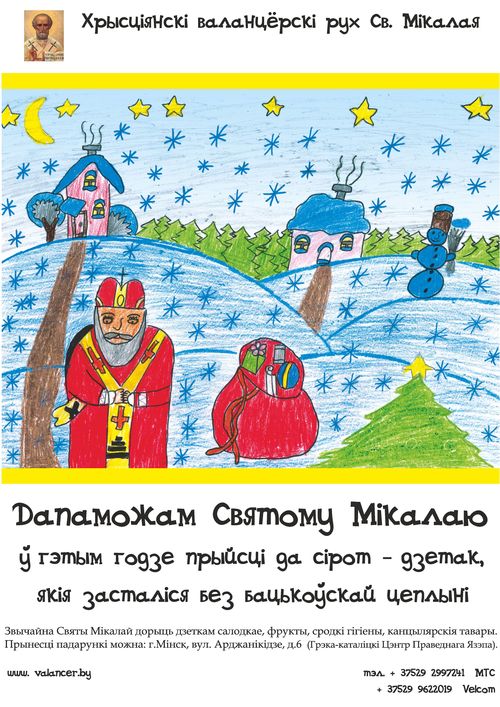 Хрысціянскі валанцёрскі рух Св. Мікалая
Дапаможам Святому Мікалаю
ў гэтым годзе прыйсці да сірот – дзетак,
якія засталіся без бацькоўскай цеплыні
Звычайна Святы Мікалай дорыць дзеткам салодкае, фрукты, сродкі гігіены, канцылярскія тавары.
Прынесці падарункі можна: г.Мінск, вул. Арджанікідзе, д.6 (Грэка-каталіцкі Цэнтр Праведнага Язэпа).
www. valancer.by
тэл. + 37529 2997241 МТС
+ 37529 9622019 Velcom